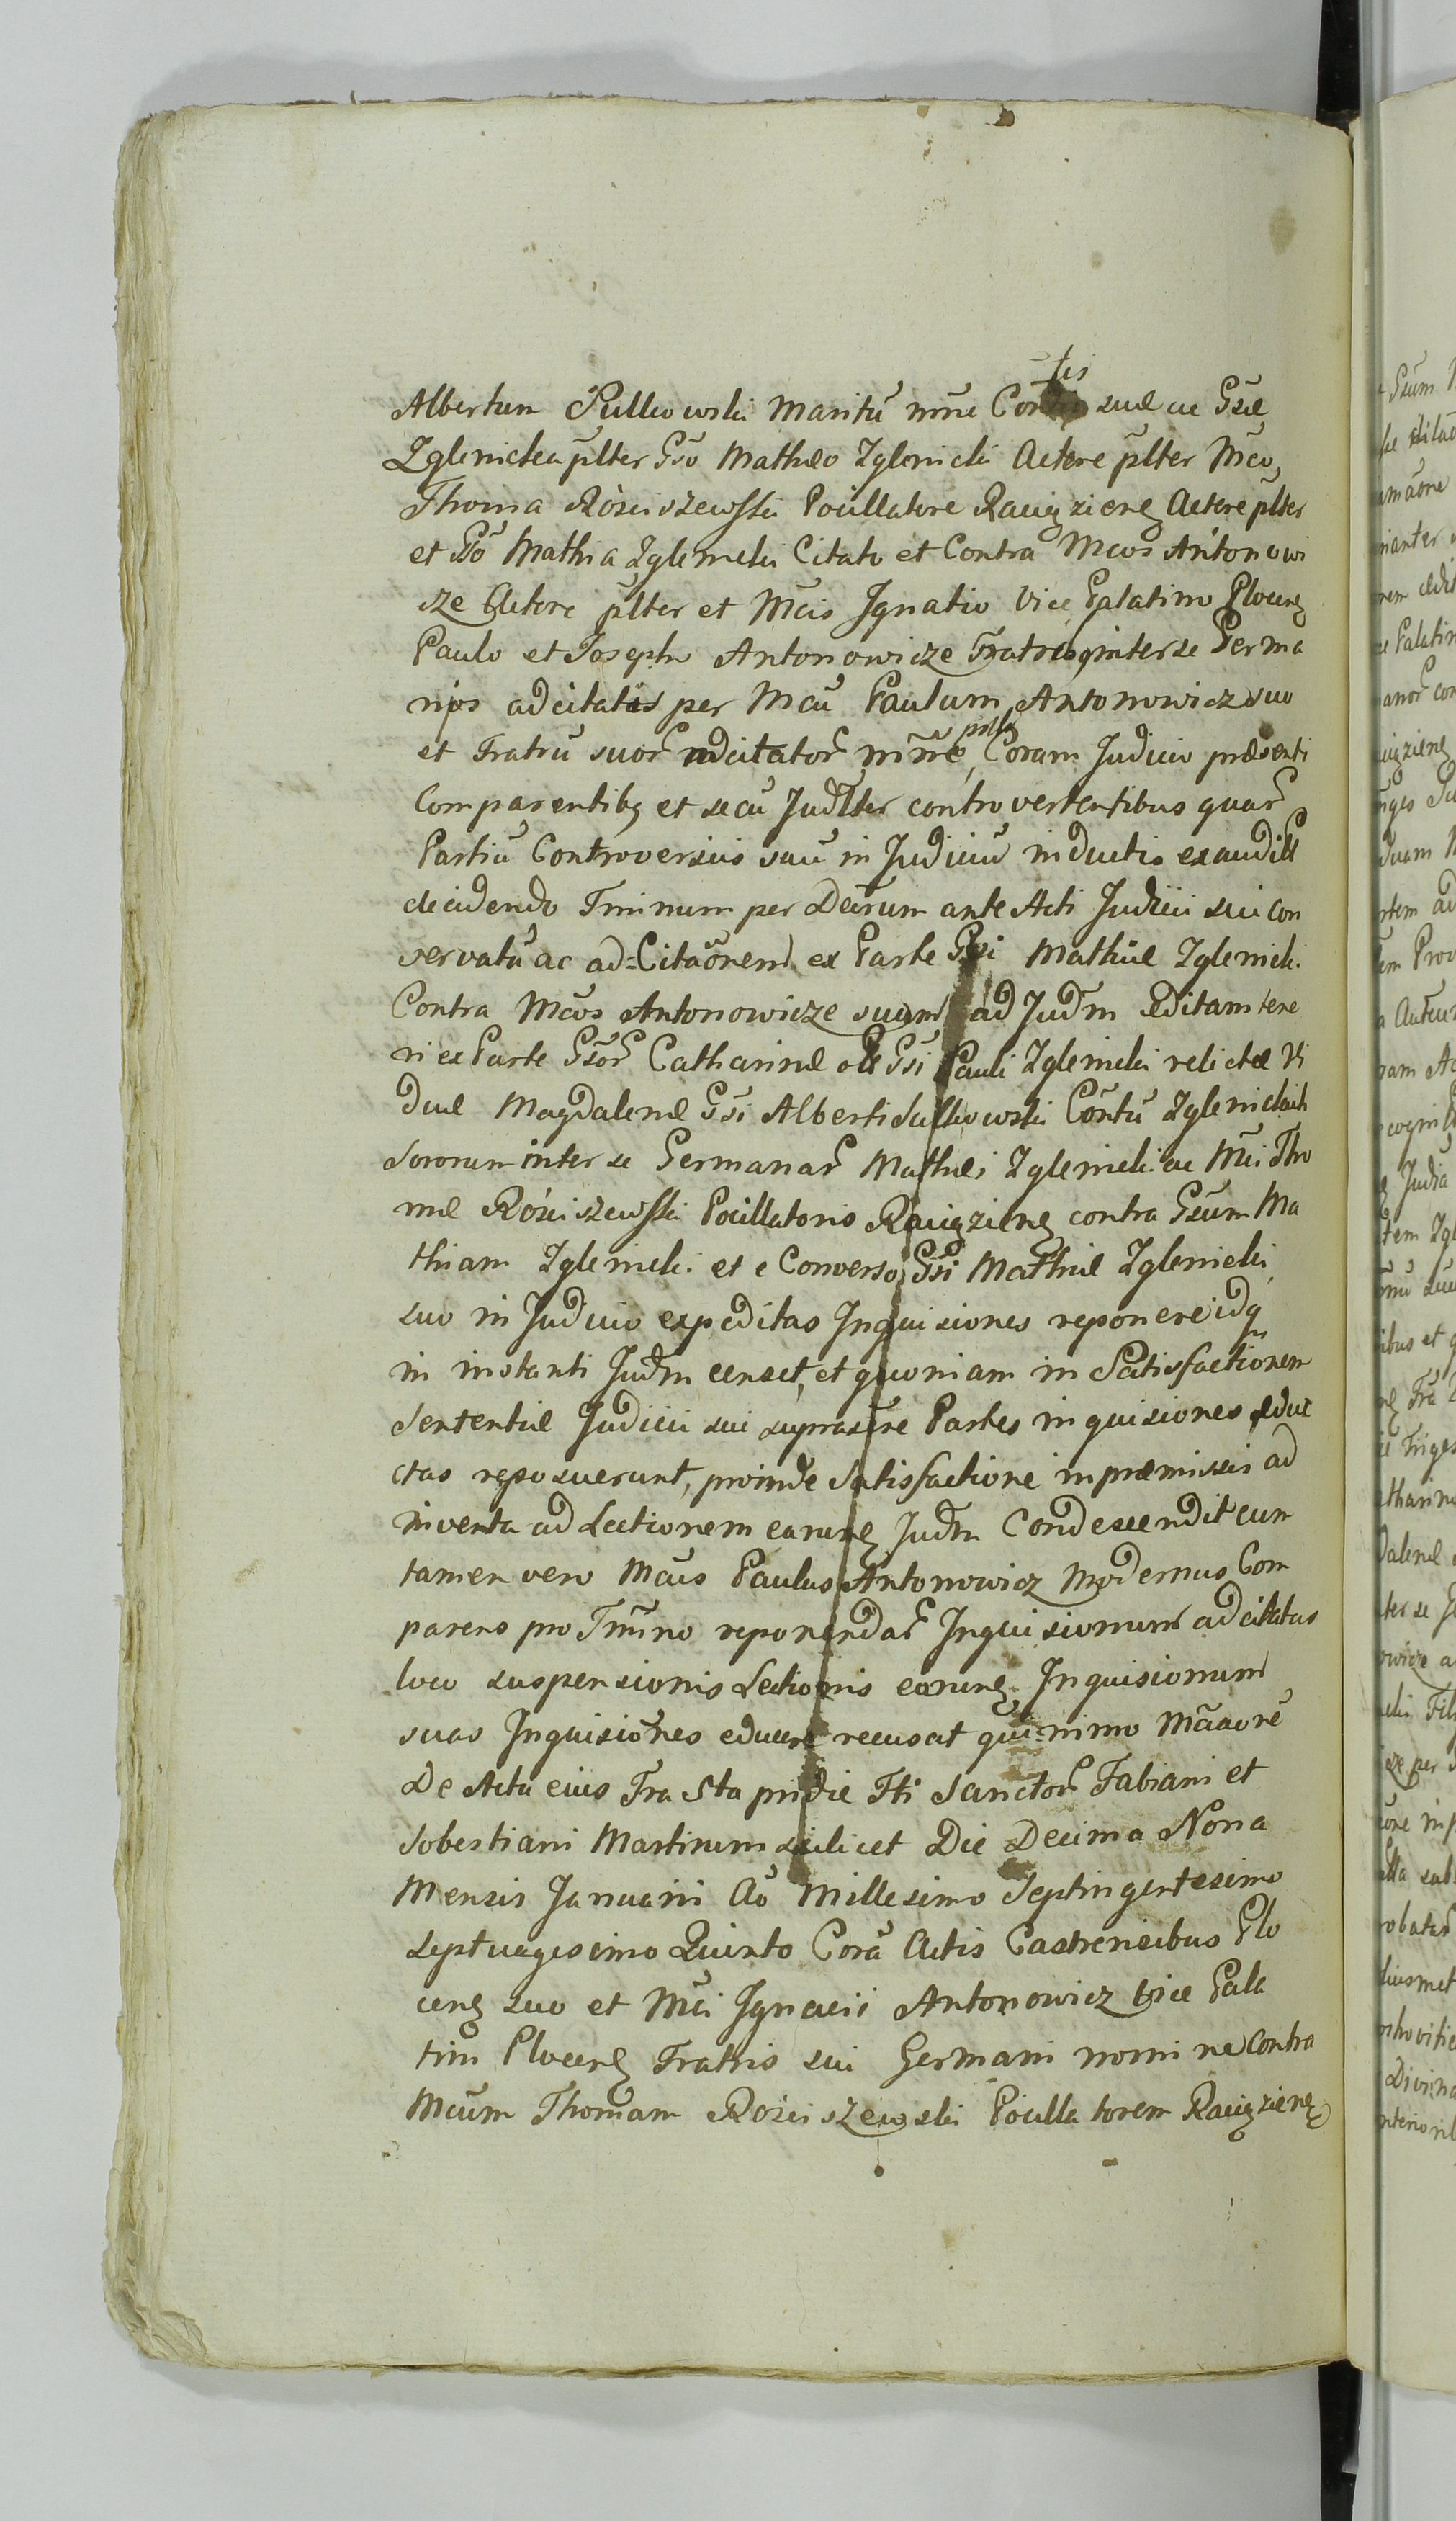 Albertum Sulkowski Maritũ nm̃e Coñtis suæ ac Gsæ
Zglenicka p̃lter Gsõ Mathæo Zglenicki Actore p̃lter Mcõ
Thoma Rosciszewski Pocillatore Raciązieneg Actore p̃lter
et Gsõ Mathia Zglenicki Citato et Contra Mcos Antonowi
cze Actore p̃lter et Mcis Ignatio Vice Palatino Ploceneg
Paulo et Joseph Antonowicze Fratribg inter se Germa
nios adcitatis per Mcũ Paulum Antonowicz suo
et Fratrũ suor̃ adcitator̃ nm̃e Coram Judicio præsenti
Comparentibg et secũ Judlter controvertentibus quar̃
Partiũ Controversiis suũ in Judiciũ inductis exaudit
decidendo Tminum per Decrum ante Acti Judicii sui con
servatũ ac ad=Citaõnem ex Parte Gsi Mathiæ Zglenicki
Contra Mcos Antonowicze suum ad Judm Editam tene
ri ex Parte Gsor̃ Catharinæ ol Gsi Pauli Zglenicki relictæ Vi
duæ Magdalenæ Gsi Alberti Sulkowski Coñtũ Zglenickich
Sororum inter se Germanar̃ Mathæi Zglenicki ac Mci Tho
mæ Rósciszewski Pocillatoris Raciązieneg contra Gsum Ma
thiam Zglenicki et e Converso Gsi Mathiæ Zglenicki
suo in Judicio expeditas Inquisiones reponere idq
in instanti Judm censet, et quoniam in Satisfactionem
Sententiæ Judicii sui suprascre Partes inquisiones educ
ctas reposuerunt, proinde Satisfactione in præmissis ad
inventa ad Lectionem earung Judm Condescendit cum
tamen vero Mcus Paulus Antonowicz Modernus Com
parens pro Tmino reponendar̃ Inquisionum adcitatus
loco suspensionis Lectionis earung Inquisionum
suas Inquisiones educere recusat qui=nimo Maaõre
De Actu eius Fra 5ta pridie Fti Sanctor̃ Fabiani et
Sobestiani Martirum scilicet Die Decima Nona
Mensis Januarii Aõ Millesimo Septingentesimo
Septuagesimo Quinto Corã Actis Castrensibus Plo
ceneg suo et Mci Ignacii Antonowicz Vice Pala
tini Ploceneg Fratris sui Germani nomine Contra
Mcum Thomam Rosciszewski Pocillatorem Raciązieneg